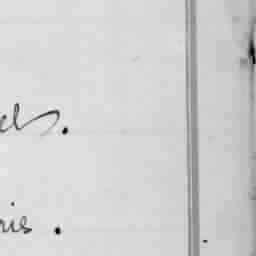 els.
ris.